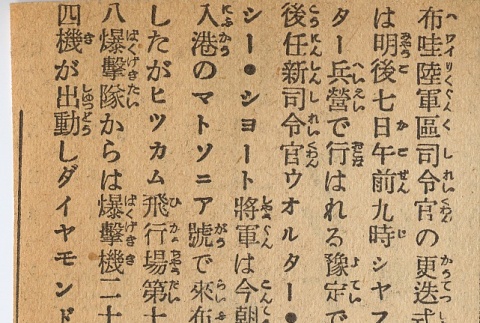 布哇陸軍區司令官の更迭式
は明後七日午前九時シヤフ
ター兵營で行はれる豫定で
後任新司令官ウオルター・
シー・シヨート將軍は今朝
入港のマトソニア號で來布
したがヒツカム飛行場第十
八爆擊隊からは爆擊機二十
四機が出動しダイヤモンド